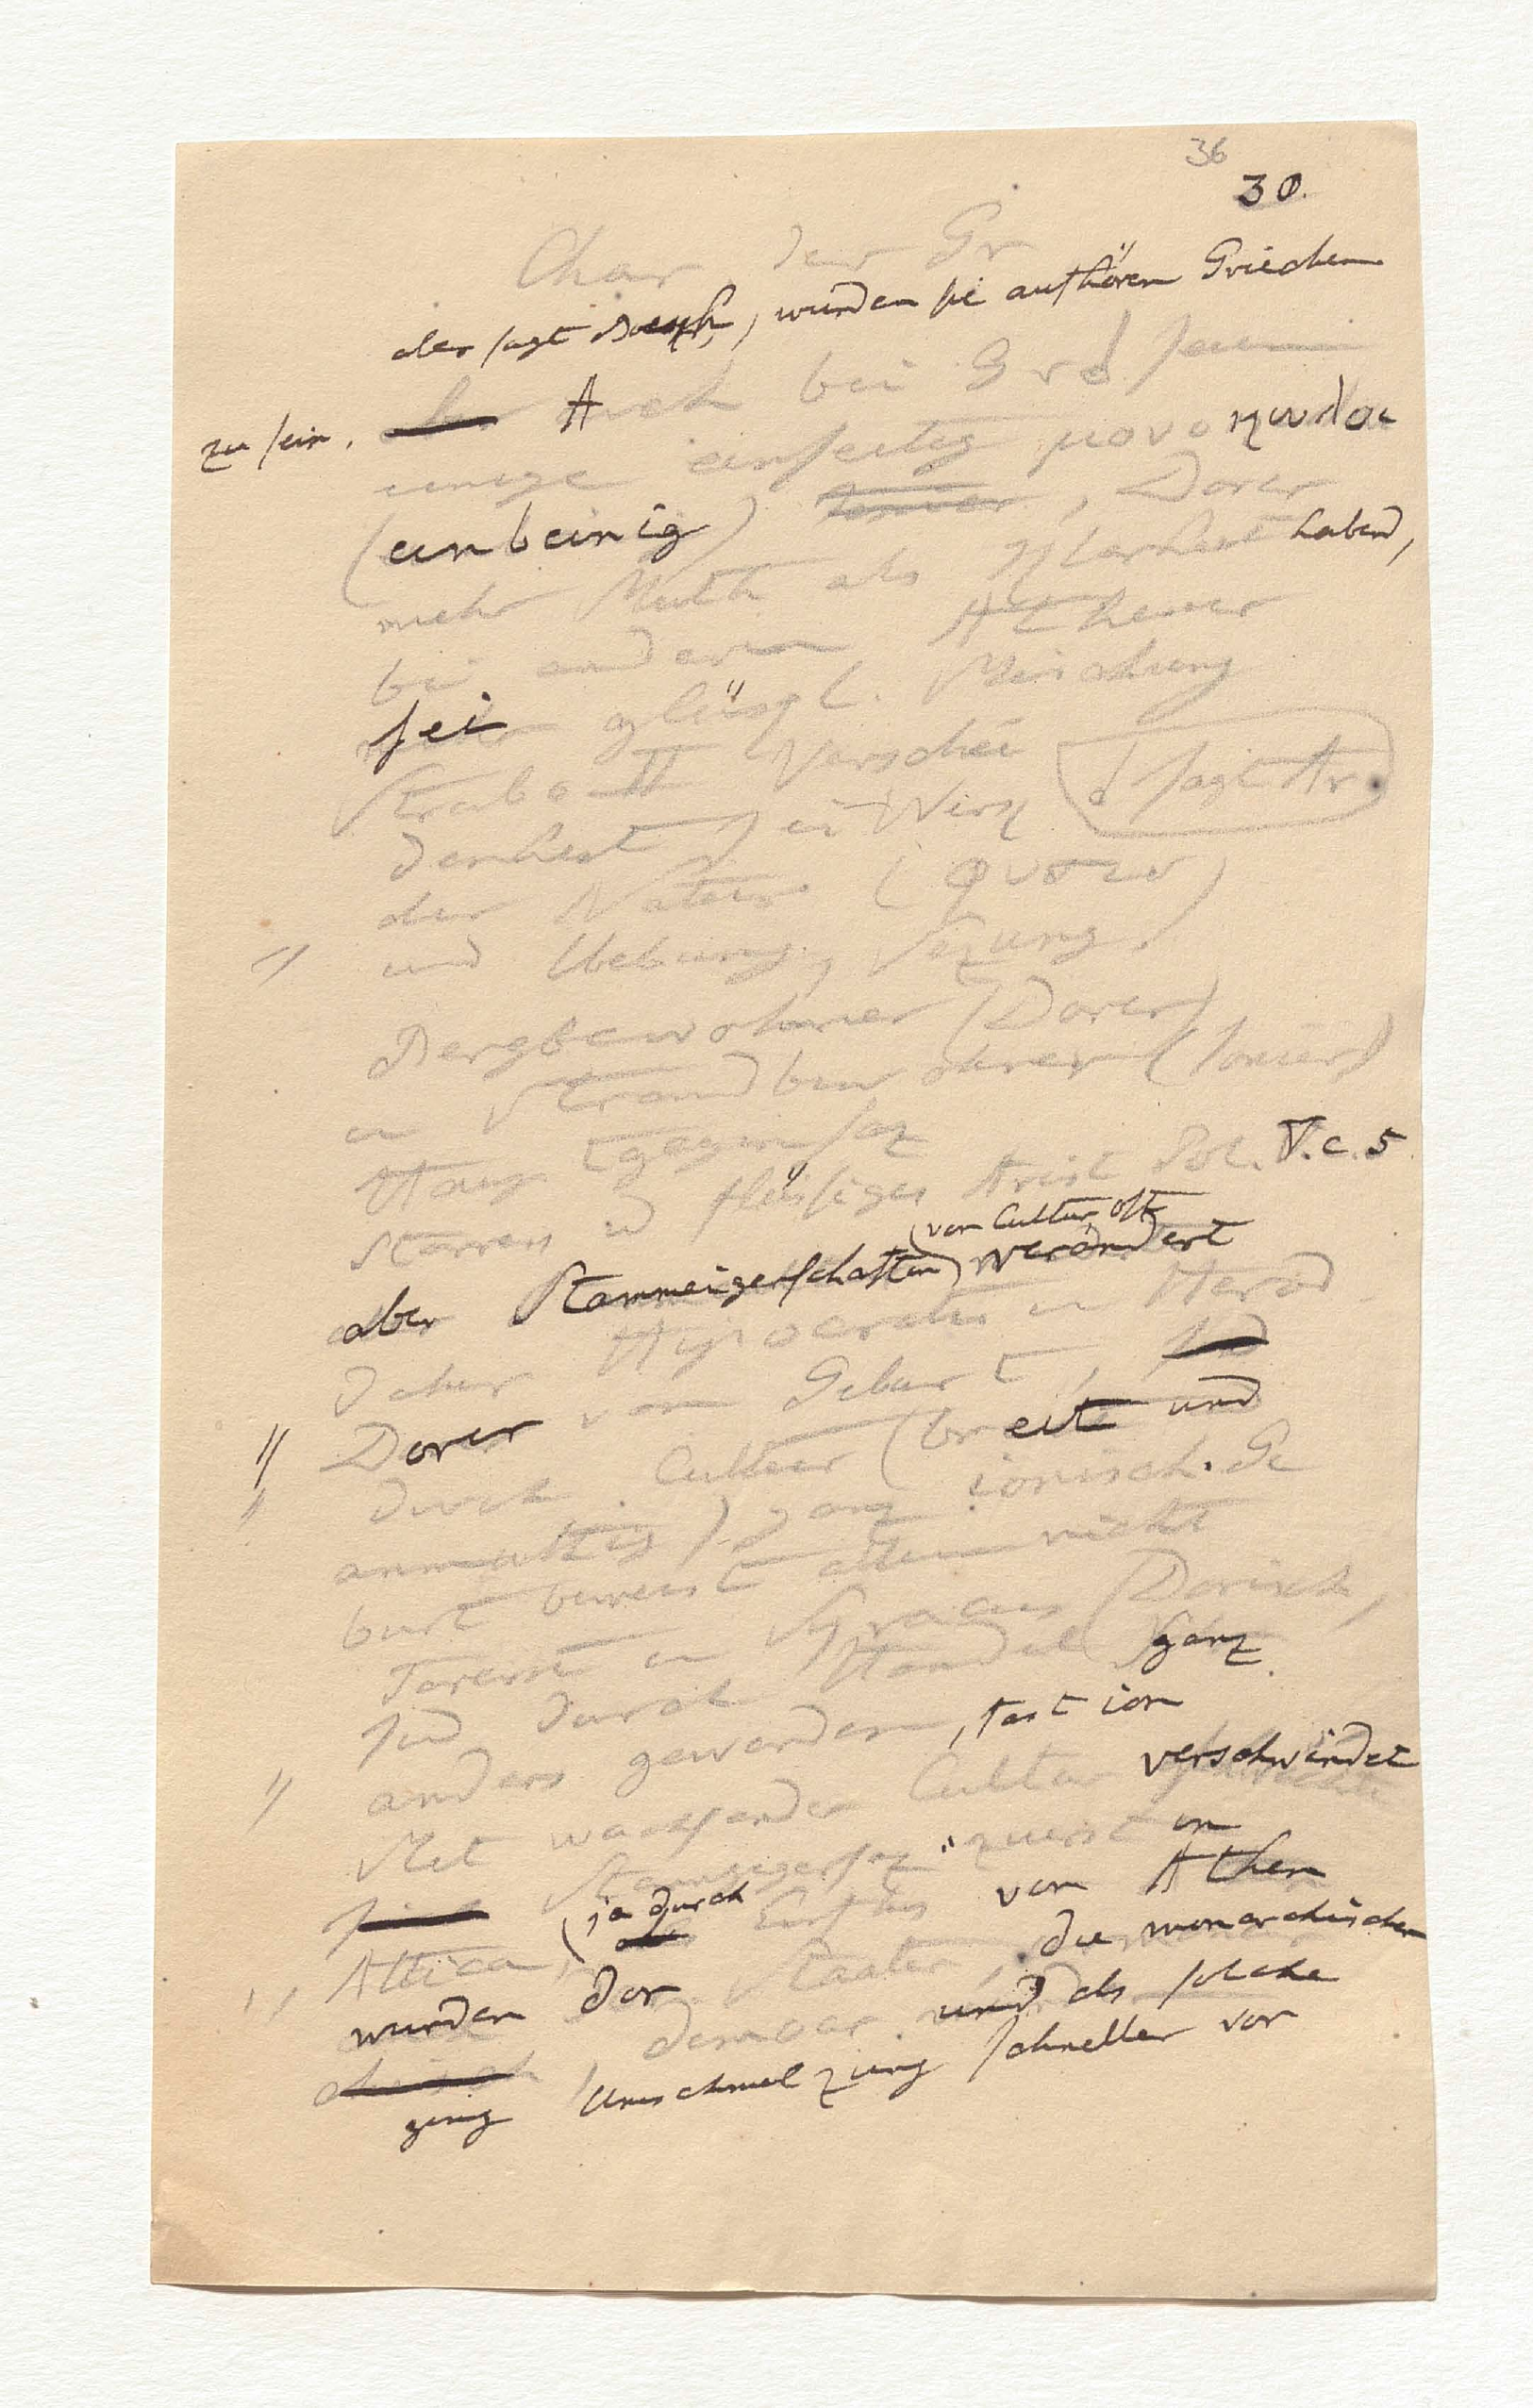 36
30.
Char der Gr
aber sagt Boeckh, würden sie aufhören Griechen
zu sein.
A auch bei Grd
einige einseitig μονοκωλοι
(einbeinig), Dorer
mehr Muth als Klarheit habend,
bei anderen Athener
sei glückl. Mischung
Strabo II Verschie
denheit sei Werk
d sagt Ar.
der Natur (φυσει)
und Uebung, Sezung
Bergbewohner (Dorer)
u Strandbewohner (Ionier)
Haupt gegensaz
Starres u flüssiges Arist Pol. V. c. 5
aber Stammeigenschaften (von Cultur oft) verändert
daher Hippocrates u Herod
Dorer von Geburt,
durch Cultur (breite und
anmuthig) ganz ionisch. Ge
burt beweist allein nicht
Tarent u Syracus (Dorisch)
sind durch Handel ganz
anders geworden, fast ion
Mit wachsender Cultur verschwindet
Stammgegensaz zuerst in
Attica, (ja durch Einfluss von Athen
wurden dor Staaten, die monarchischen
democr. und als solche
ging Umschmelzung schneller vor